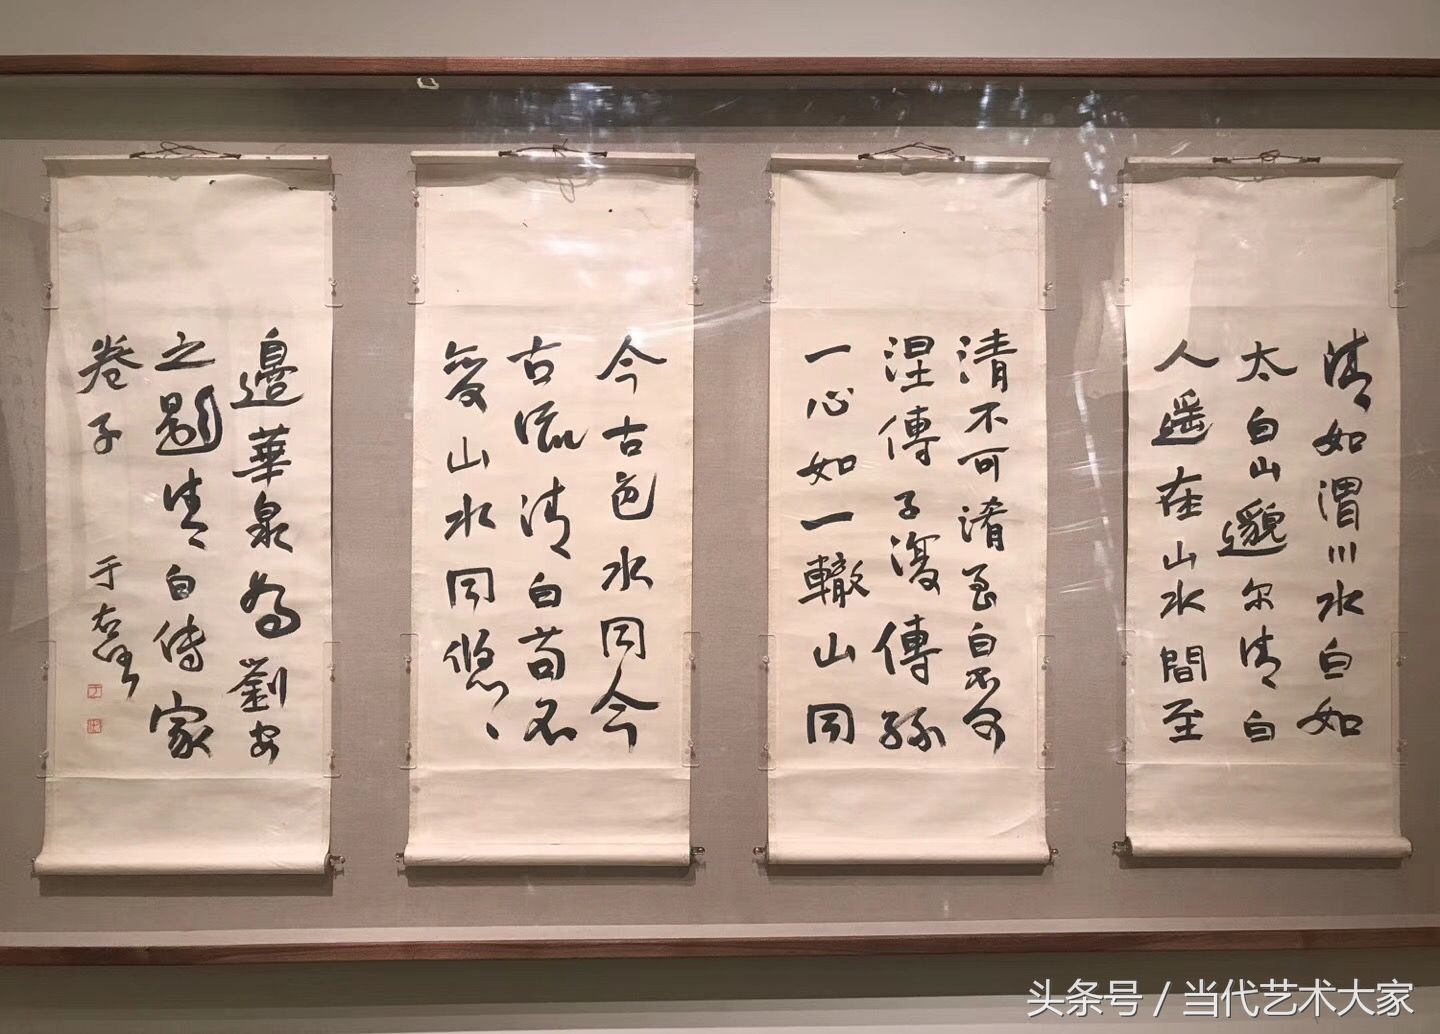 清如渭川水白如
太白山邈尔清白
人遥在山水間至
清不可淆至白不可
涅傳子復傳孫
一心如一轍山同
今古色水同今
古流清白苟不
變山水同悠〻
邊華泉為劉安
之題清白傳家
卷子
于右任
头条号 / 当代艺术大家